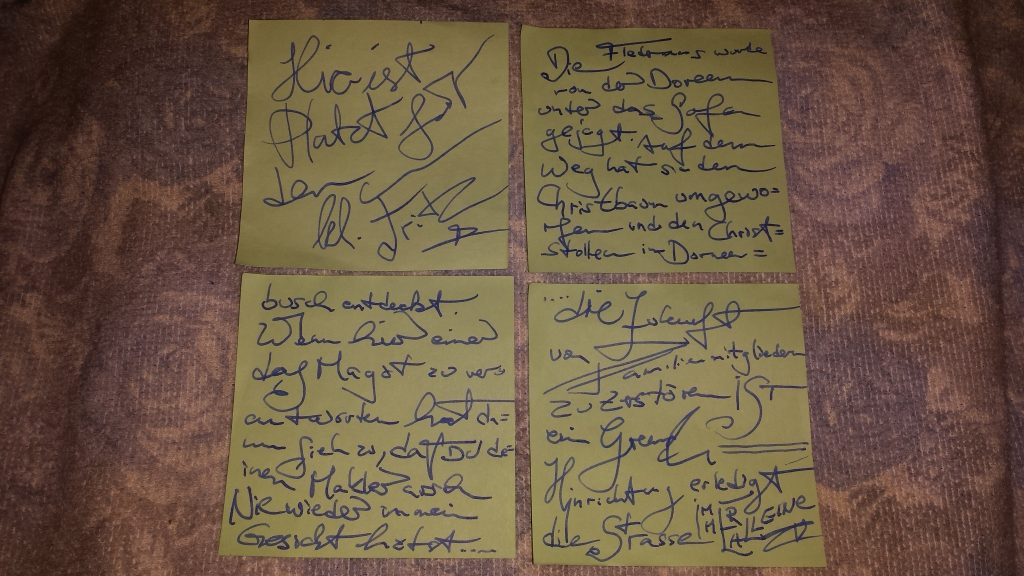 Hier ist
Platz für
den
kl. Fritz
Die Fledermaus wurde
von der Doreen
unter das Sofa
gejagt. Auf dem
Weg hat sie den
Christbaum umgewo-
rfen und den Christ=
stollen im Doreen=
busch entdeckt.
Wenn hier einer
das Magst zu ver-
antworten hat da=
nn sieh zu, daß Du de-
inen Makler arsch
Nie wieder in mein
Gesicht hälst....
....die Zukunft
von Familienmitgliedern
zu Zerstören IST
ein Grend
Hinrichtung erledigt
die Strasse